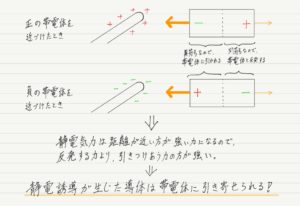 正の帯電体を
近づけたとき
異符号なので、
帯電体に引かれる
同符号なので、
帯電体と反発する
負の帯電体を
近づけたとき
静電気力は距離が近い方が強い力になるので、
反発する力より、引きつけあう力の方が強い。
静電誘導が生じた導体は帯電体に引き寄せられる！